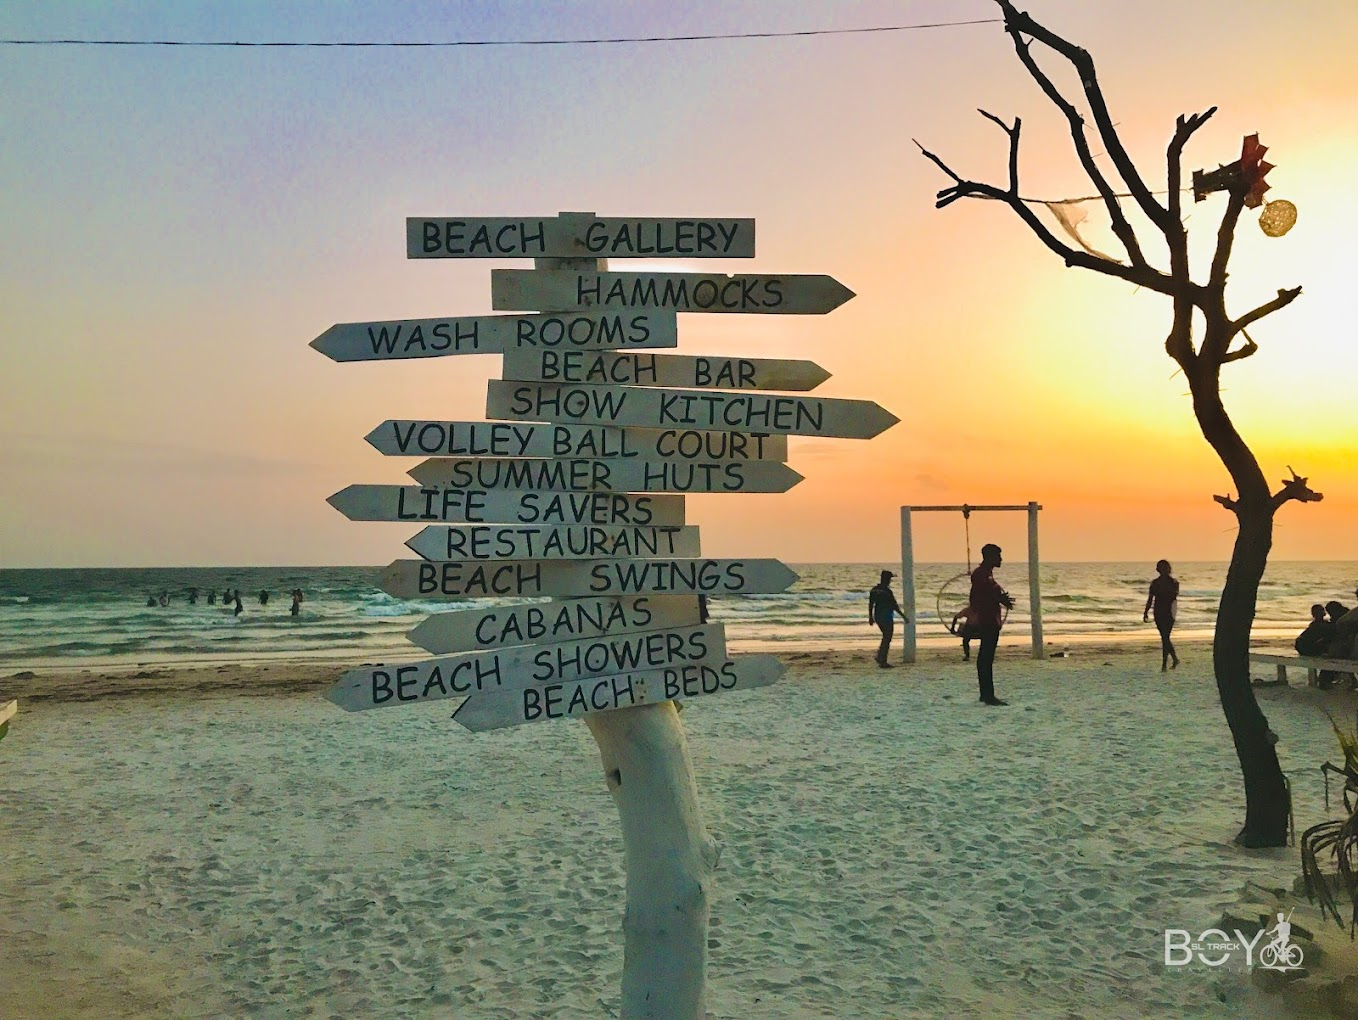 BEACH GALLERY
HAMMOCKS
WASH ROOMS
BEACH BAR
SHOW KITCHEN
VOLLEY BALL COURT
SUMMER HUTS
LIFE SAVERS
RESTAURANT
BEACH SWINGS
CABANAS
BEACH SHOWERS
BEACH BEDS
BOY
SL TRACK
TRAVELLER